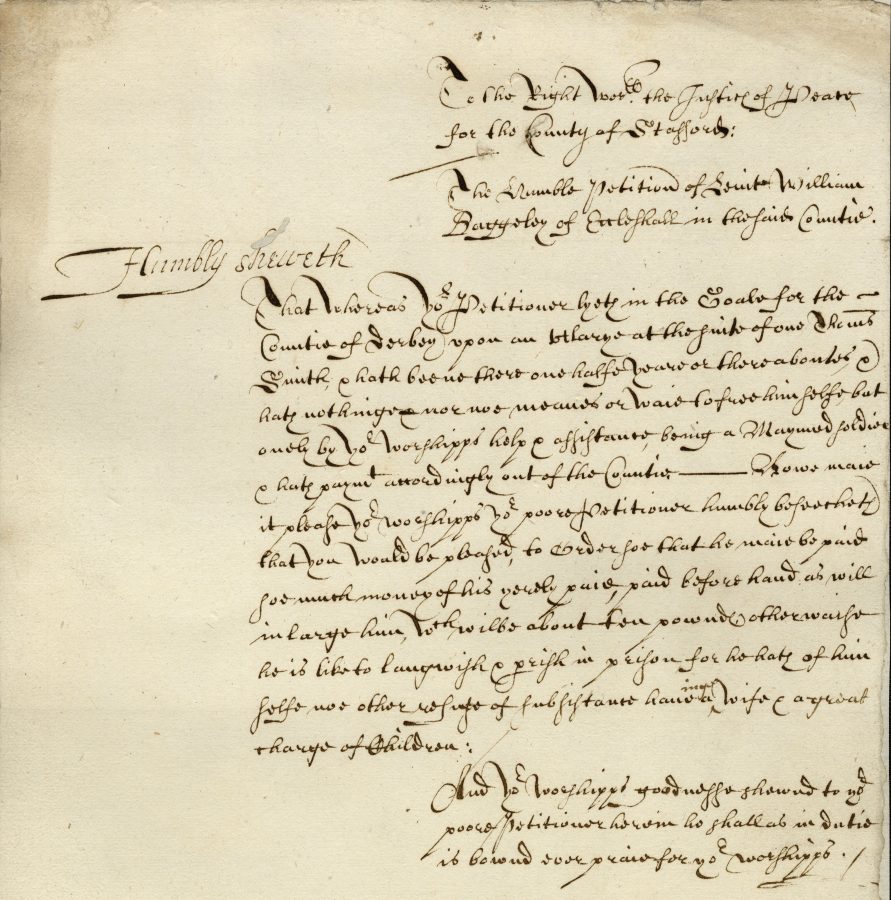 To the Right Wor:ll the Justices of Peace
for the County of Stafford:
The Humble Petition of Leiut William
Baggeley of Eccleshall in the said Countie.
Humbly sheweth
That Whereas yor Petitioner lyeth in the Goale for the
Countie of Derbey upon an at the suite of one Thoms
Smith, & hath beene there one halfe yeare or thereaboutes, &
hath nothinge nor noe meanes or waie to free himselfe but
onely by yor worshipps help & assistance, being a Maymed soldier
& hath paymt accordingly out of the Countie —— Nowe maie
it please yor worshipps yor poore Petitioner humbly beseecheth
that you would be pleased, to Order soe that he maie be paid
soe much money of his yerely paie, paid before hand as will
inlarge him, wch wilbe about ten pownds otherwaise
he is like to langwish & perish in prison for he hath of him
selfe noe other refuge of subsistance haveinge a wife & a great
charge of Children:
And yor worshipps goodnesse shewed to yor
poore Petitioner herein he shall as in dutie
is bownd ever praie for yor worshipps.